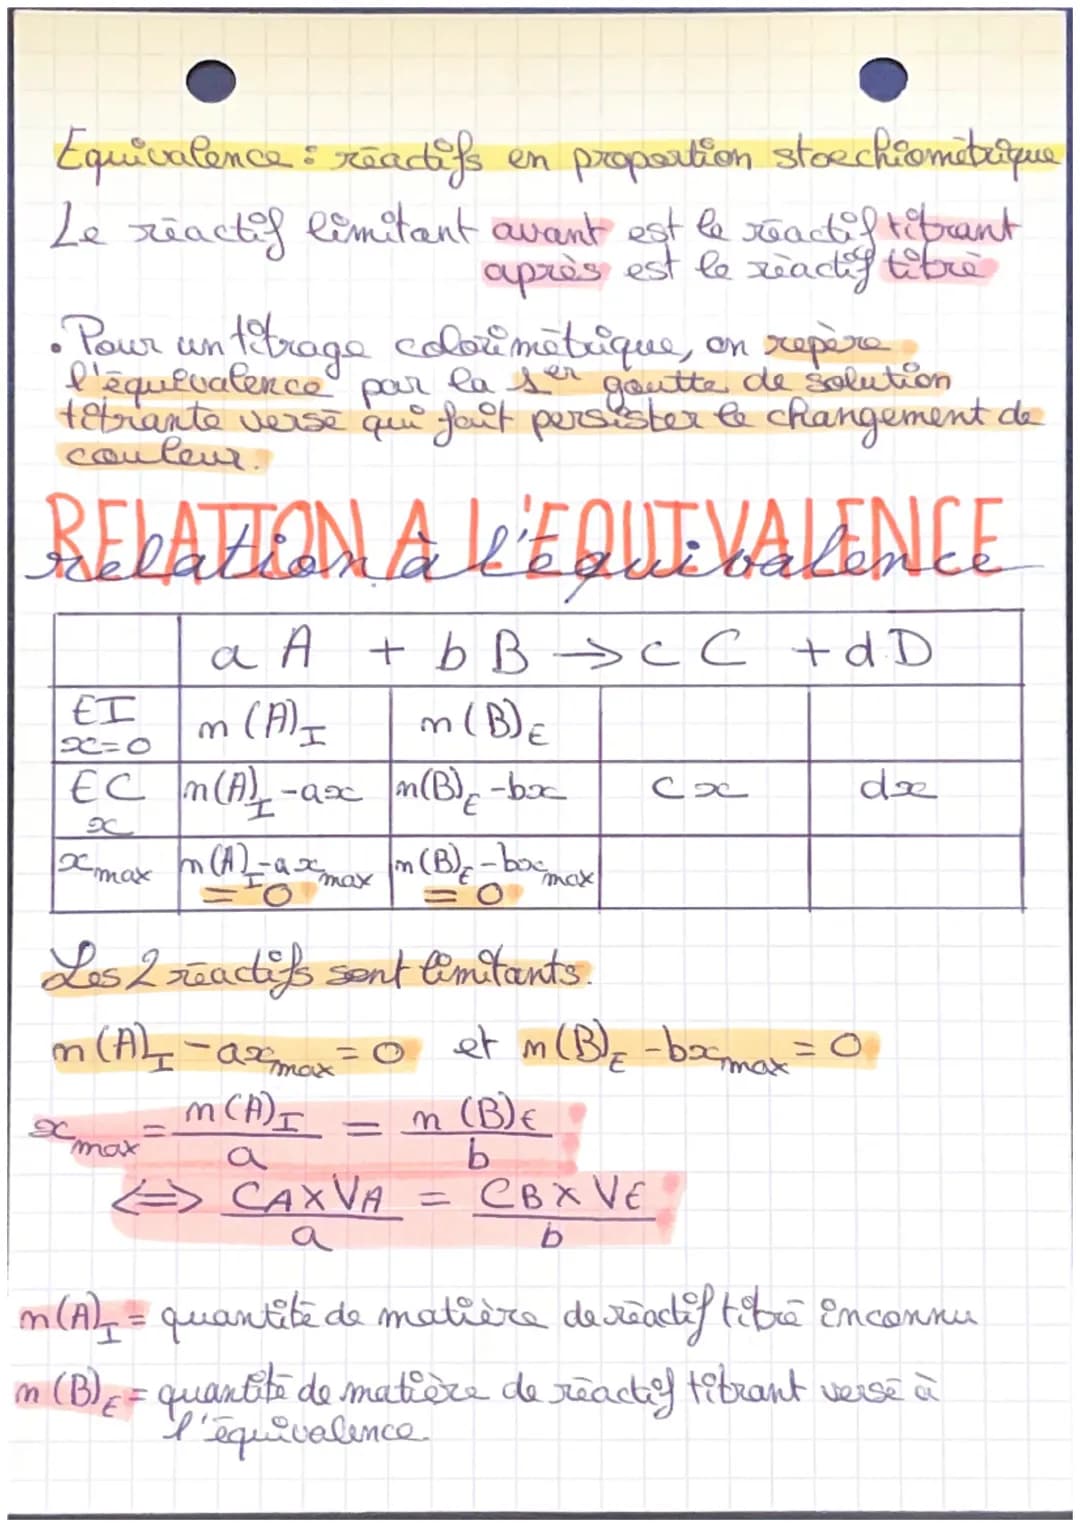 Equivalence : réactifs en proportion stoechiométrique
Le réactif limitant avant est le réactif titrant
après est le réactif titré
• Pour un titrage colorimétrique, on repère
l'équivalence par la 1er goutte de solution
titrante versé qui fait persister le changement de
couleur.
RELATION A L'EQUIVALENCE
relation à l'équivalence
a A + b B → c C + d D
EI x=0 n(A)I n(B)E
EC x n(A)I -ax n(B)E -bx cx dx
xmax n(A)I -a xmax = 0 n(B)E -bxmax = 0
Les 2 réactifs sont limitants.
n(A)I - axmax = 0 et n(B)E - bxmax = 0
xmax = n(A)I / a = n(B)E / b
<=> CA x VA / a = CB x VE / b
n(A)I = quantité de matière de réactif titré inconnu
n(B)E = quantité de matière de réactif titrant versé à
l'équivalence